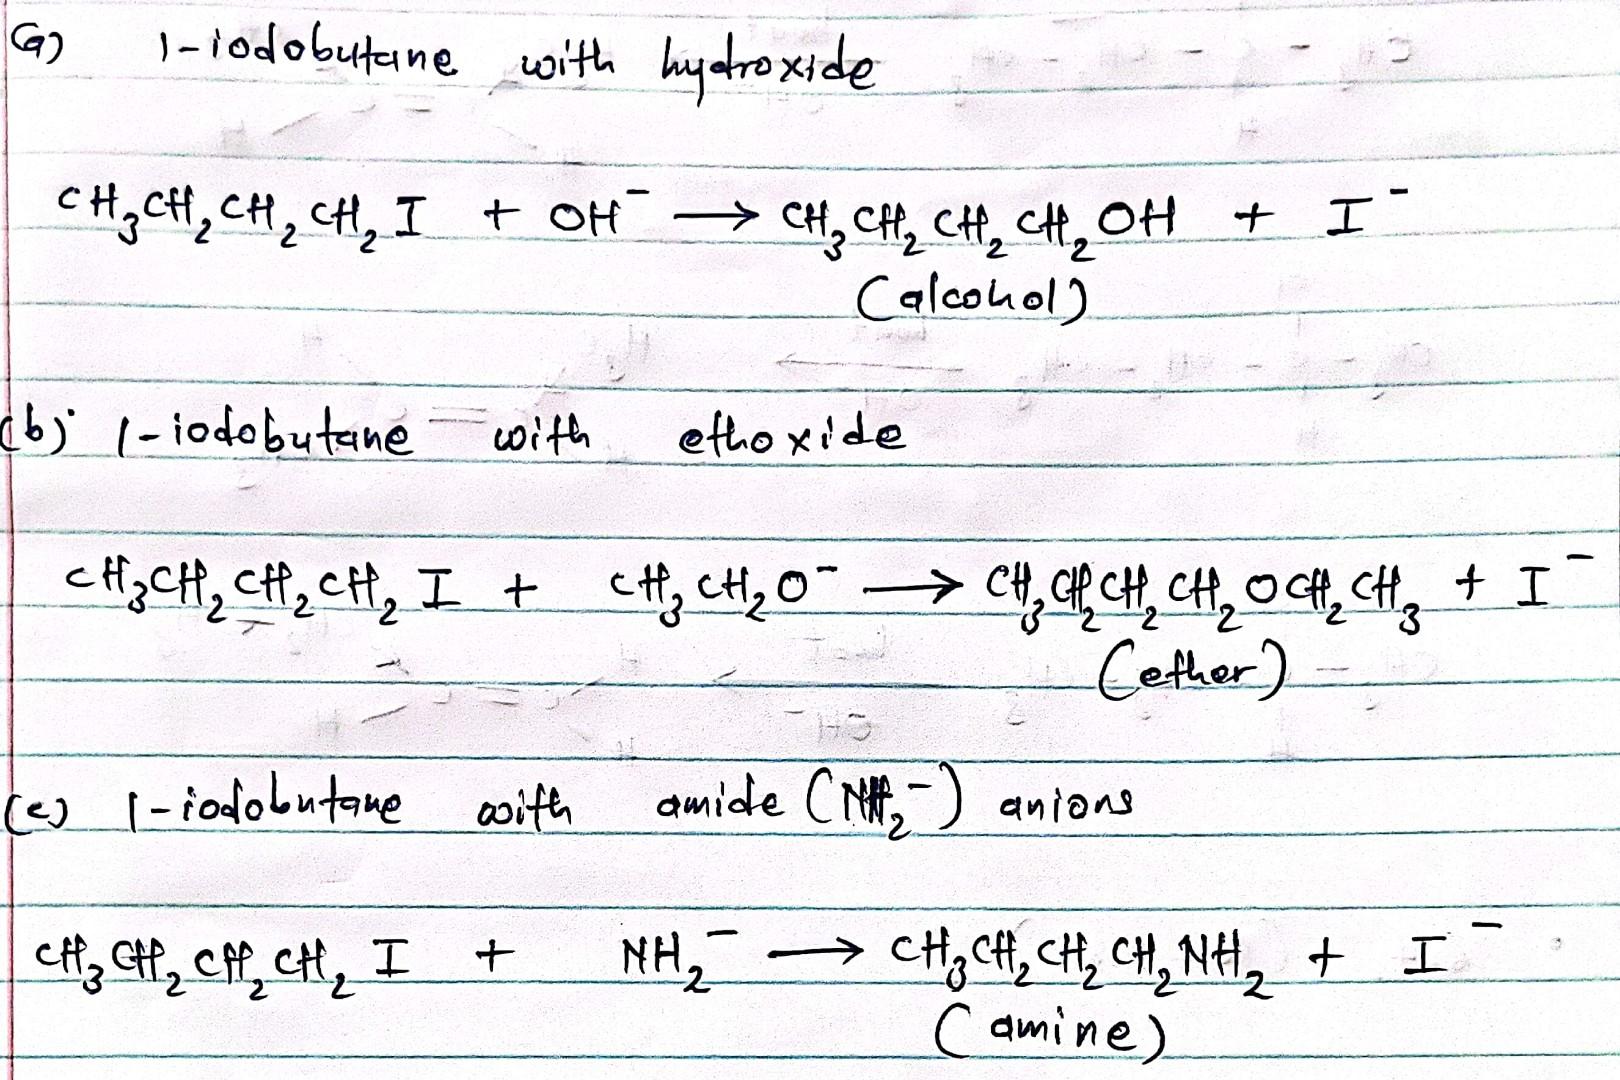 (a) 1-iodobutane with hydroxide
CH₃CH₂CH₂CH₂I + OH⁻ → CH₃CH₂CH₂CH₂OH + I⁻
(alcohol)
(b) 1-iodobutane with ethoxide
CH₃CH₂CH₂CH₂I + CH₃CH₂O⁻ → CH₃CH₂CH₂CH₂OCH₂CH₃ + I⁻
(ether)
(c) 1-iodobutane with amide (NH₂⁻) anions
CH₃CH₂CH₂CH₂I + NH₂⁻ → CH₃CH₂CH₂CH₂NH₂ + I⁻
(amine)